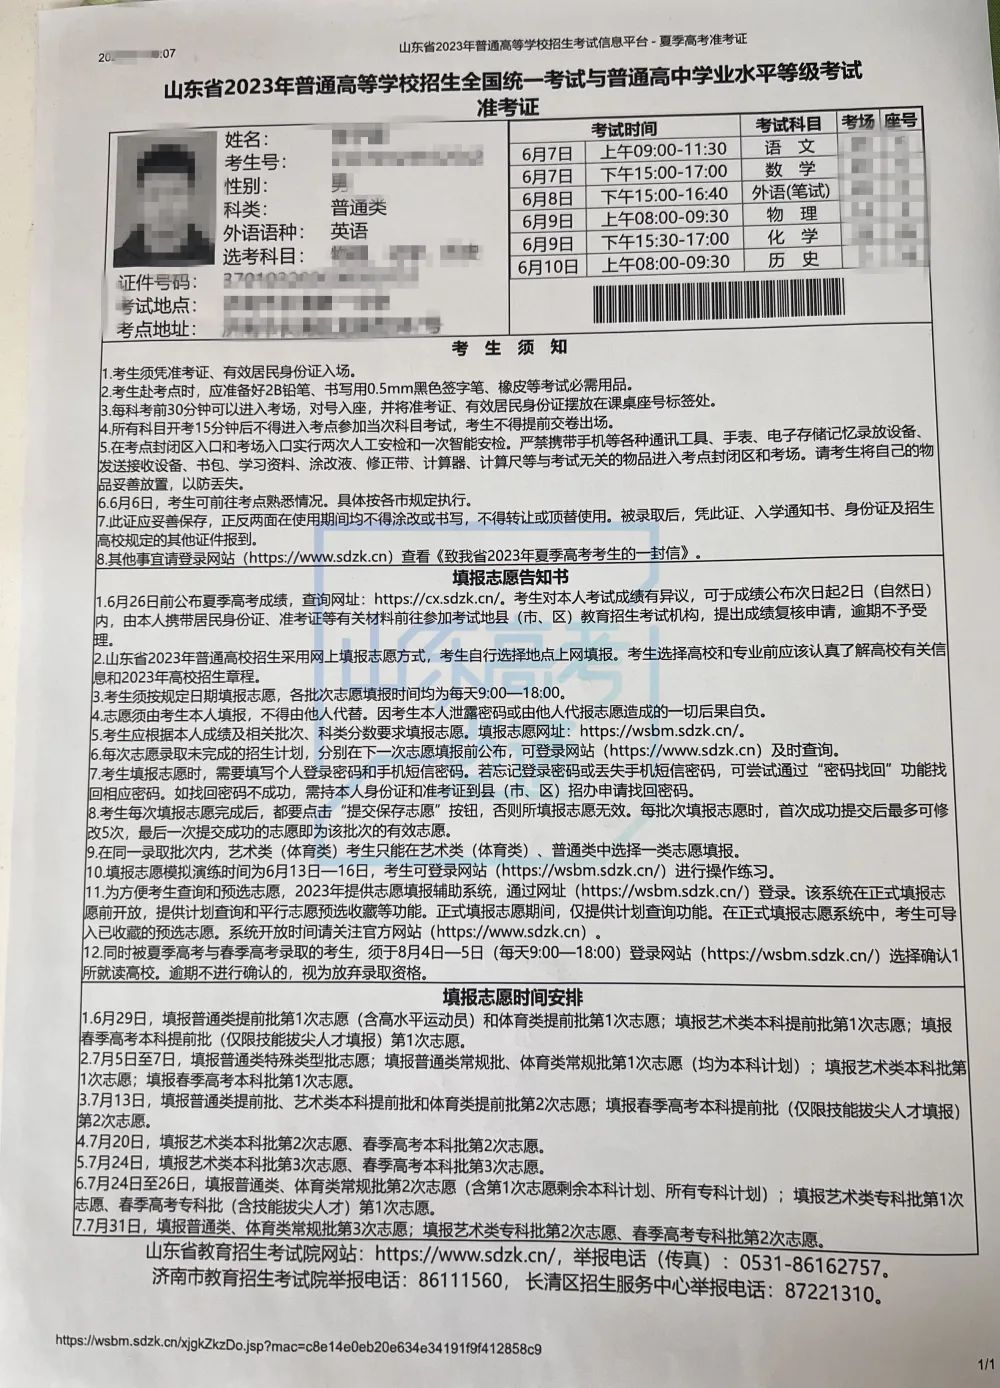 :07
山东省2023年普通高等学校招生考试信息平台 - 夏季高考准考证
山东省2023年普通高等学校招生全国统一考试与普通高中学业水平等级考试
准考证
姓名：
考生号：
性别： 男
科类： 普通类
外语语种： 英语
选考科目：
证件号码：
考试地点：
考点地址：
考试时间 考试科目 考场 座号
6月7日 上午09:00-11:30 语 文
6月7日 下午15:00-17:00 数 学
6月8日 下午15:00-16:40 外语(笔试)
6月9日 上午08:00-09:30 物 理
6月9日 下午15:30-17:00 化 学
6月10日 上午08:00-09:30 历 史
考 生 须 知
1.考生须凭准考证、有效居民身份证入场。
2.考生赴考点时，应准备好2B铅笔、书写用0.5mm黑色签字笔、橡皮等考试必需用品。
3.每科考前30分钟可以进入考场，对号入座，并将准考证、有效居民身份证摆放在课桌座号标签处。
4.所有科目开考15分钟后不得进入考点参加当次科目考试，考生不得提前交卷出场。
5.在考点封闭区入口和考场入口实行两次人工安检和一次智能安检。严禁携带手机等各种通讯工具、手表、电子存储记忆录放设备、
发送接收设备、书包、学习资料、涂改液、修正带、计算器、计算尺等与考试无关的物品进入考点封闭区和考场。请考生将自己的物
品妥善放置，以防丢失。
6.6月6日，考生可前往考点熟悉情况。具体按各市规定执行。
7.此证应妥善保存，正反两面在使用期间均不得涂改或书写，不得转让或顶替使用。被录取后，凭此证、入学通知书、身份证及招生
高校规定的其他证件报到。
8.其他事宜请登录网站（https://www.sdzk.cn）查看《致我省2023年夏季高考考生的一封信》。
填报志愿告知书
1.6月26日前公布夏季高考成绩，查询网址：https://cx.sdzk.cn/。考生对本人考试成绩有异议，可于成绩公布次日起2日（自然日）
内，由本人携带居民身份证、准考证等有关材料前往参加考试地县（市、区）教育招生考试机构，提出成绩复核申请，逾期不予受
理。
2.山东省2023年普通高校招生采用网上填报志愿方式，考生自行选择地点上网填报。考生选择高校和专业前应该认真了解高校有关信
息和2023年高校招生章程。
3.考生须按规定日期填报志愿，各批次志愿填报时间均为每天9:00—18:00。
4.志愿须由考生本人填报，不得由他人代替。因考生本人泄露密码或由他人代报志愿造成的一切后果自负。
5.考生应根据本人成绩及相关批次、科类分数要求填报志愿。填报志愿网址：https://wsbm.sdzk.cn/。
6.每次志愿录取未完成的招生计划，分别在下一次志愿填报前公布，可登录网站（https://www.sdzk.cn）及时查询。
7.考生填报志愿时，需要填写个人登录密码和手机短信密码。若忘记登录密码或丢失手机短信密码，可尝试通过“密码找回”功能找
回相应密码。如找回密码不成功，需持本人身份证和准考证到县（市、区）招办申请找回密码。
8.考生每次填报志愿完成后，都要点击“提交保存志愿”按钮，否则所填报志愿无效。每批次填报志愿时，首次成功提交后最多可修
改5次，最后一次提交成功的志愿即为该批次的有效志愿。
9.在同一录取批次内，艺术类（体育类）考生只能在艺术类（体育类）、普通类中选择一类志愿填报。
10.填报志愿模拟演练时间为6月13日—16日，考生可登录网站（https://wsbm.sdzk.cn/）进行操作练习。
11.为方便考生查询和预选志愿，2023年提供志愿填报辅助系统，通过网址（https://wsbm.sdzk.cn/）登录。该系统在正式填报志
愿前开放，提供计划查询和平行志愿预选收藏等功能。正式填报志愿期间，仅提供计划查询功能。在正式填报志愿系统中，考生可导
入已收藏的预选志愿。系统开放时间请关注官方网站（https://www.sdzk.cn）。
12.同时被夏季高考与春季高考录取的考生，须于8月4日—5日（每天9:00—18:00）登录网站（https://wsbm.sdzk.cn/）选择确认1
所就读高校。逾期不进行确认的，视为放弃录取资格。
填报志愿时间安排
1.6月29日，填报普通类提前批第1次志愿（含高水平运动员）和体育类提前批第1次志愿；填报艺术类本科提前批第1次志愿；填报
春季高考本科提前批（仅限技能拔尖人才填报）第1次志愿。
2.7月5日至7日，填报普通类特殊类型批志愿；填报普通类常规批、体育类常规批第1次志愿（均为本科计划）；填报艺术类本科批第
1次志愿；填报春季高考本科批第1次志愿。
3.7月13日，填报普通类提前批、艺术类本科提前批和体育类提前批第2次志愿；填报春季高考本科提前批（仅限技能拔尖人才填报）
第2次志愿。
4.7月20日，填报艺术类本科批第2次志愿、春季高考本科批第2次志愿。
5.7月24日，填报艺术类本科批第3次志愿、春季高考本科批第3次志愿。
6.7月24日至26日，填报普通类、体育类常规批第2次志愿（含第1次志愿剩余本科计划、所有专科计划）；填报艺术类专科批第1次
志愿、春季高考专科批（含技能拔尖人才）第1次志愿。
7.7月31日，填报普通类、体育类常规批第3次志愿；填报艺术类专科批第2次志愿、春季高考专科批第2次志愿。
山东省教育招生考试院网站：https://www.sdzk.cn/，举报电话（传真）：0531-86162757。
济南市教育招生考试院举报电话：86111560，长清区招生服务中心举报电话：87221310。
https://wsbm.sdzk.cn/xjgkZkzDo.jsp?mac=c8e14e0eb20e634e34191f9f412858c9
1/1
山东高考